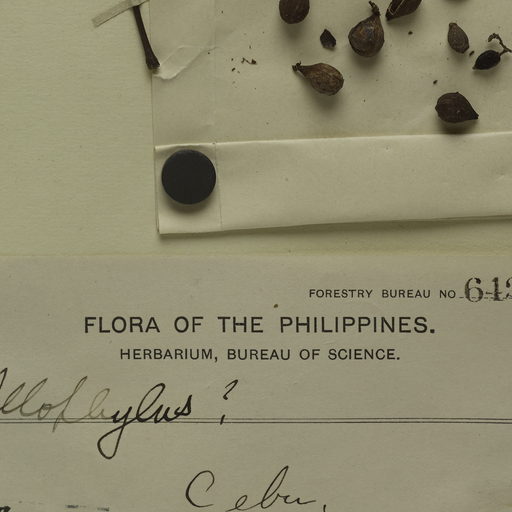 FORESTRY BUREAU NO. 642
FLORA OF THE PHILIPPINES.
HERBARIUM, BUREAU OF SCIENCE.
Allophylus ?
Cebu.